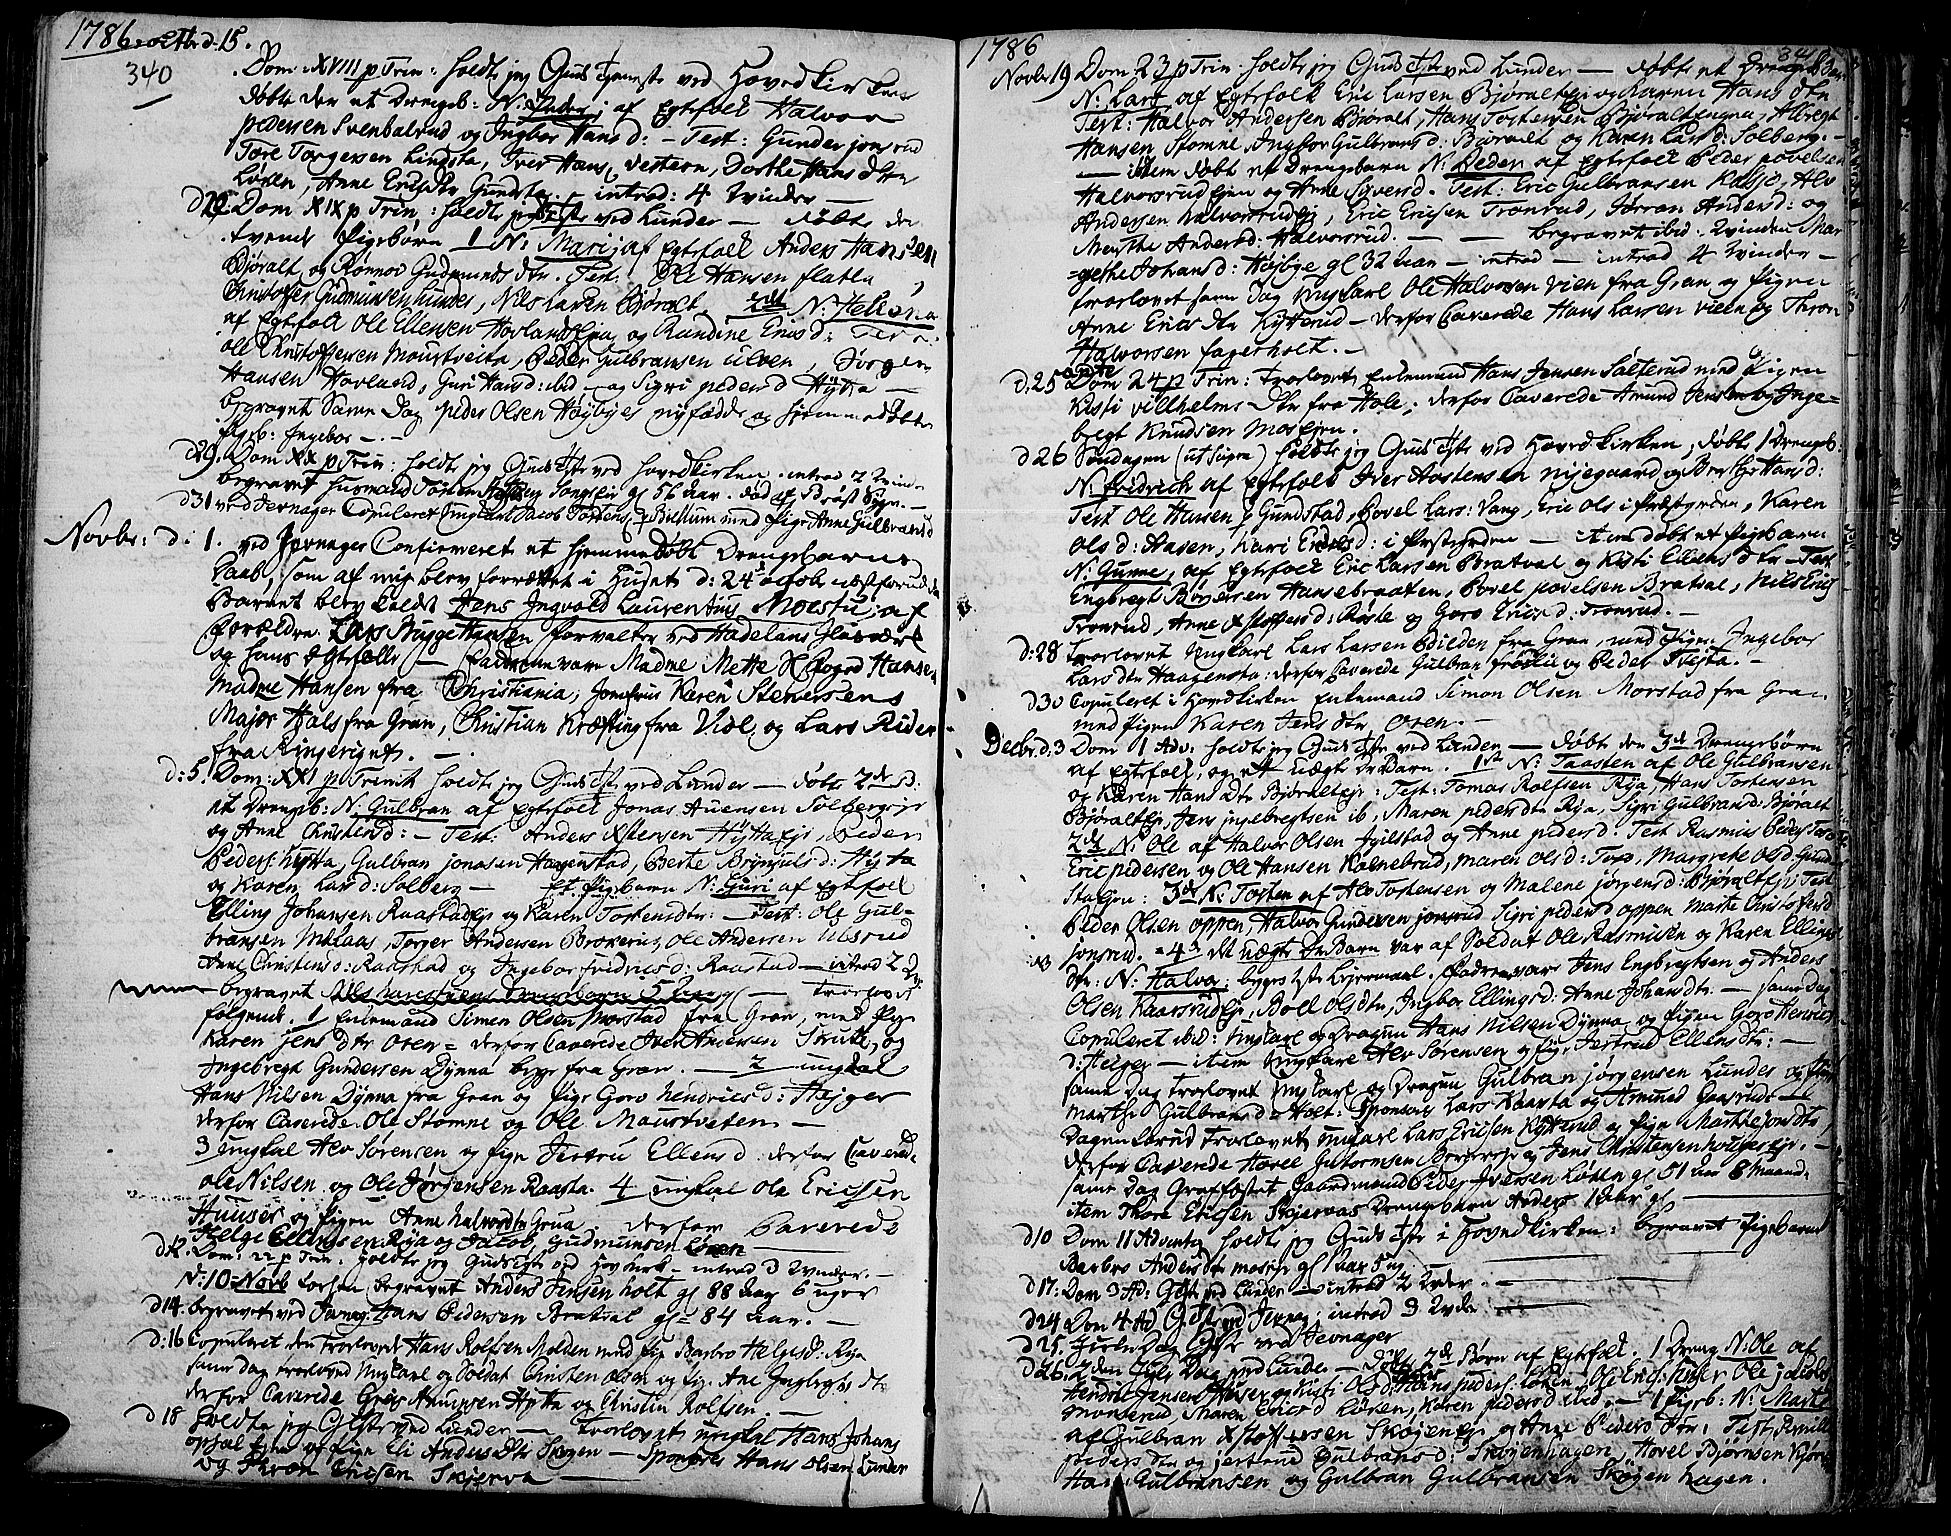 1786 octb d. 15.
340
Dom: XVIII p Trin: holdt jeg Guds Tjeneste ved Hovedkirken
døbte der et Drengeb: N: Anders; af Egtefolk Halvor
Pedersen Svenbalrud og Ingbor Hans d: - Test: Gunder jonsrud
Tore Torgersen Lindsta, Iver Hans, Vestern, Dorthe Hans dtr
Løken, Anne Ericsdtr Gundsta - introd: 4 Qvinder -
d 22 Dom XIX p Trin: holdt ved Lunder - døbte der
tvende Pigebørn 1 N: Mari af Egtefolk Anders Hansen
Bjøralt og Rønnov Gudmunds dtr. Test: Ole Hansen flatla,
Christoffer Gudmunsen Lundes, Nils Larsen Bjøralt, 2de N: Helena
af Egtefolk Ole Ellensen Hovlandseie og Randine Ericsd: Test:
Ole Christoffersen Moustveita, Peder Gulbransen Ulven, Jørgen
Hansen Hovland, Guri Hansd: ibid - og Sigri peders d Hytta -
begravet Samme Dag peder Olsen Høybyes nyfødde og hjemmedøbte
Pigeb: Ingebor -.-
d 29. Dom XX p Trin: holdt jeg Guds Tste ved hovedkirken. introd 2 Qvinder
begravet husmand Torsten Songeleie gl 56 aar. død af Bryst Sygen. -
d 31 ved Jevnager Copuleret ungkarl Jacob Tostens. Billium med Pige Anne Gulbransd
Novbr: d: 1. ved Jevnager Confirmeret et hjemmedøbt Drengebarns
Daab, som af mig blev forrettet i Huset d: 24 octob: næstforrige
Barnet blev kaldt Jens Ingvald Laurentius Moestue; af
forældre Lars Bugge Hansen forvalter ved Hadelans Glasværk
og hans Egtefelle - Faddrene vare Madme Mette Hansen
Madme Hansen fra Christiania, Jomfrue Karen Stenersens
Major Hals fra Gran, Christian Kræfting fra Viol, og Lars Rider
fra Ringeriget. -
d: 5. Dom: XXI p Trinit holdt jeg Guds Tste ved Lunder - døbt 2de B:
et Drengeb: N: Gulbran af Egtefolk Jonas Auensen Solbergeie
og Anne Christensd: - Test: Anders Xstensen Hyttaeie, Peder
Peders: Hytta, Gulbran jonasen Hagenstad, Berte Brynjulsd: Hytta
og Karen Lars d: Solberg - Et Pigebarn N: Guri af Egtefolk
Elling Johansen Raastadeie og Karen Tostensdtr: - Test: Ole Gul-
bransen Melaas, Torger Andersen Brokerud, Ole Andersen Ulsrud
Anne Christensd: Raastad og Ingebor fridricsd: Raastad - introd 2 Qv
begravet - trolovet
følgende. 1 Enkemand Simen Olsen Morstad fra Gran, med Pige
Karen jens dtr Oren - derfor Caverede Iver Andersen Skute, og
Ingebregt Gundersen Dynna begge fra Gran. - 2 ungkal
Hans Nilsen Dynna fra Gran og Pige Goro Hendricsd: Helger
derfor Caverede. Ole Stomne og Ole Moustveten -
3 ungkal Alv Sørensen og Pige Jertru Ellensd: derfor Caverede
Ole Nilsen og Ole Jørgensen Raasta. 4 ungkal Ole Ericsen
Huuser og Pigen Anne halvorsdtr Grua. derfor Caverede
Helge Ellingsen Rya og Jacob Gudmunsen Løken
d 12. Dom: 22 p Trin: holdte jeg Guds Tste ved Hovedk - introd 3 Qvinder. -
N: 10 Novb begravet Anders Jensen holt gl 88 aar 6 uger
d 14. begravet ved Jevnag: Hans Pedersen Bratval gl= 84 aar. -
d: 16 Copuleret den trolovet Hans Rolfsen Molden med Pig Barbro Helgesd: Rya
samme dag trolovet Ungkarl og Soldat Christen Olsen og Pig: Ane Ingbregts dtr
derfor Caverede Gres Knuppen Hytta og Christen Rolfsen. -
d 18 holdte jeg ved Lunder - trolovet ungkal Hans Johans
opsal og Pige Eli Anders dtr Skogen - Sponsores Hans Olsen Lunder
og Thron Ericsen Skjerva -
1786
341
Novbr 19 Dom 23 p Trin. holdt jeg Guds Tste ved Lunder - døbte et Drengebarn
N: Lars af Egtefolk Eric Larsen Bjøralteie og Karen Hans dtr
Test: Halvor Andersen Bjøralt, Hans Tostensen Bjøraltengna, Albregt
Hansen Stomne, Ingebor Gulbransd: Bjøralt og Karen Lars d: Solberg. -
- item døbt et Drengebarn N: Peder af Egtefolk Peder povelsen
Halvorsrudeien og Anne Syversd. Test: Eric Gulbransen Kasse, Alv
Andersen halvorsrudeie, Eric Ericsen Tronrud, Jørran Andersd: og
Marthe Andersd: Halvorsrud. - - begravet ibid: Qvinden Mar
=grethe Johans d: Høybye gl 32 aar - introd - introd 4 Qvinder -
trolovet samme Dag Ungkarl Ole Halvorsen Vien fra Gran og Pigen
Anne Erics dtr Kytterud - derfor Caverede Hans Larsen Vien og Thron
Halvorsen fagerholt. -
d. 25 Dom 24 p Trin: Trolovet Enkemand Hans Jensen Solterud med Pigen
Kisti Villhelms dtr fra Hole; derfor Caverede Amund Jensen og Inge=
bregt Knudsen Moseien.
d 26 Søndagen (ut supra) holdte jeg Guds Tste ved Hovedkirken, døbt 1 Drengeb:
N: fridrich af Egtefolk Iver Tostensen nyegaard og Berthe Hans d:
Test Ole Hansen Gundstad, Povel Lars: Vang, Eric Ols i Præstgiorden, Karen
Ols d: Aasen, Kari Erics d: i Præstgiorden - item døbt et Pigebarn
N: Gunne, af Egtefolk Eric Larsen Bratval og Kisti Ellens dtr - Test
Engbregt Børresen Hansebraaten, Povel povelsen Bratval, Nils Erics
Tronrud, Anne Xstoffersd: Røste og Goro Erics d: Tronrud. -
d: 28 trolovet Ungkarl Lars Larsen Bilden fra Gran, med Pigen Ingebor
Lars dtr Haagensta: derfor Caverede Gulbran frøslie og Peder Trøjta. -
d 30 Copuleret i Hovedkirken Enkemand Simon Olsen Morstad fra Gran
med Pigen Karen Jens dtr Oren. -
Decbr. d. 3 Dom 1 Adv: holdt jeg Guds Tste ved Lunder - døbte der 3de Drengebørn
af Egtefolk, og et uægte Dr Barn. 1ste N: Taasten af Ole Gulbransen
og Karen Hans dtr Bjøralteie: Test: Tomas Rolfsen Rya, Hans Tostensen
Bjøralteie, Jens ingebregtsen ib, Maren peders dtr Rya, Sigri Gulbransd: Bjøralt
2de N: Ole af Halvor Olsen Jyllstad og Anne peders d. Test Rasmus Peders: Torp
Eric pedersen og Ole Hansen Kolnebrud, Maren Ols d: Torp, Margrethe Ols d Gund
sta Gru: 3de N: Tosten af Alv Tostensen og Malene Jørgens d: Bjøralteie; Test
Peder Olsen oppen, Halvor Gundersen jonsrud Sigri peders d oppen Marte Christofersd
jonsrud. = 4de det uægte Dr Barn var af Soldat Ole Rasmusen og Karen Ellings
dtr: N: Halvor, begges 1ste Leiermaal. Fadrene vare Jens Engbregtsen og Anders
Olsen Kaarsrudeie, Boll Ols dtr, Ingbor Ellingsd: Anne Johans dtr. - samme dag
Copuleret ibid: Ungkarl og Dragun Hans Nilsen Dynna og Pigen Goro Henrics
d: Helger - item Ungkarl Alv Sørensen og Pig: Jertrud Ellens dtr: -
samme Dag trolovet Ungkarl og Dragun Gulbran jørgensen Lundes og
Marthe Gulbrans d = Holt: Sponsores Lars Raasta og Amund Gaasrud -
Dagen forud trolovet ungkarl Lars Ericsen Kytterud og Pige Marthe Jons dtr
derfor Caverede Hovel Gutormsen og Jens Christensen -
samme Dag Graffæstet Gaardmand Peder Iversen Løken gl 51 aar 8 Maaned.
item Thore Ericsen Skjervas Drengebarn Anders 1 aar gl -
d 10 Dom II Advent holdt jeg Guds Tste i Hovedkirken: begravet Pigebarnet
Barbro Anders dtr gl 1 aar 5 ug
d 17: Dom 3 Ad: ved Lunder - introd 2 Qvder. -
d 24 Dom 4 Ad ved Jevnag: introd 3 Qvder: -
d 25. Jule Dag ved Jevnager
d 26. 2den Jule Dag ved Lunde - døbt 2de Børn af Egtefolk. 1 Dreng N: Ole af
Hendric Jansen og Kisti Olsd Hans peders: Løken, Ole Erics: Ole jacobs
Monserud, Maren Ericsd Løken, Karen peders d ibid. - 1 Pigeb: N: Marte
af Gulbran Xstoffersen Skøyeneie og Anne Peders dtr: Test:
peders dtr og jertrud Gulbrans d: Skøyenhagen, Hovel Bjørnsen
Hans Gulbransen og Gulbran Gulbransen Skøyen hagen.